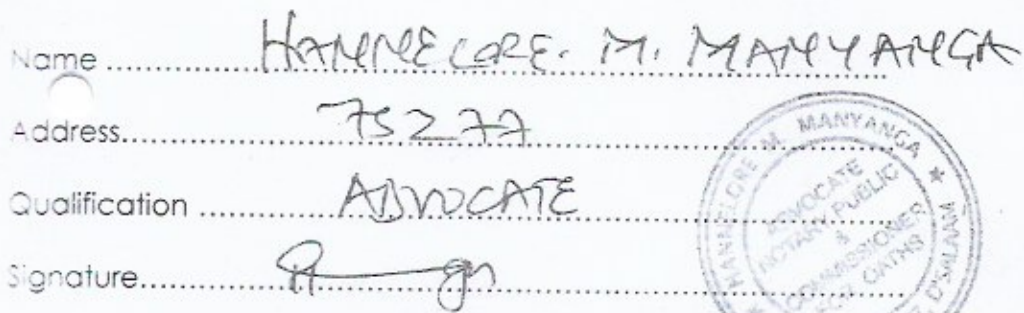 Name HANNELORE. M. MANYANGA
Address 75277
Qualification ADVOCATE
Signature
HANNELORE M. MANYANGA ★
ADVOCATE
NOTARY PUBLIC
&
COMMISSIONER
FOR OATHS
D'SALAAM